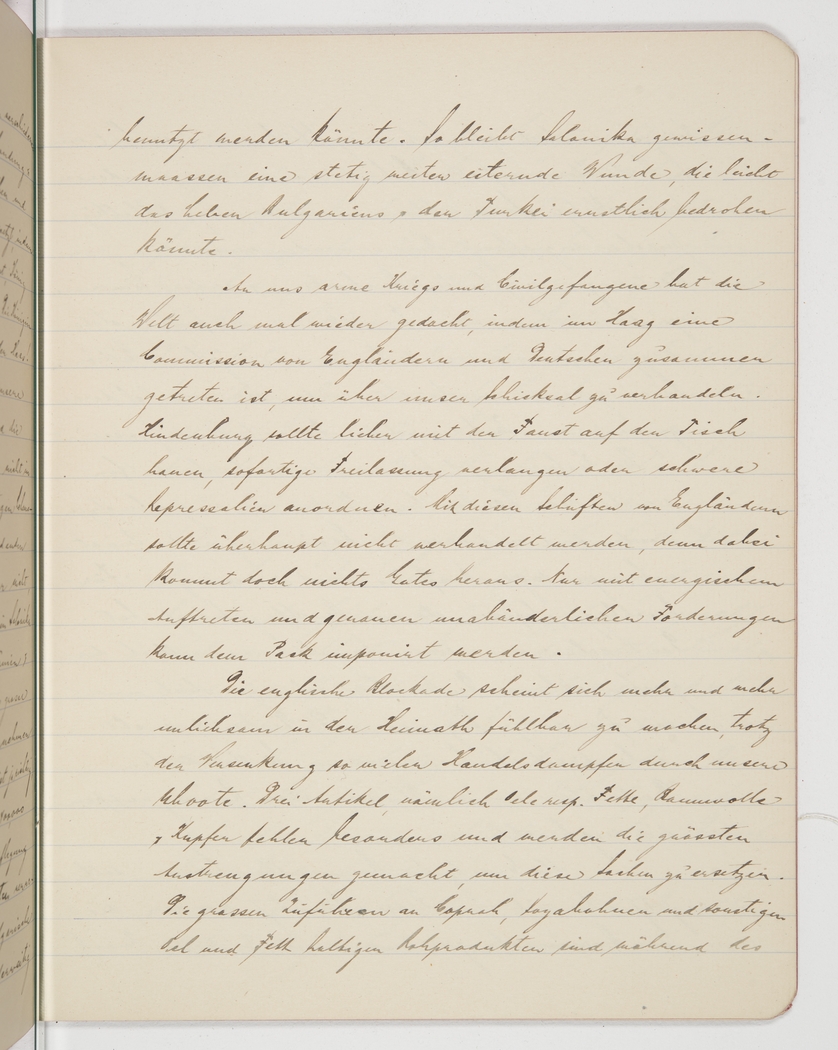 benutzt werden könnte. So bleibt Salonika gewissen-
maassen eine stetig weiter eiternde Wunde, die leicht
das Leben Bulgariens & der Türkei ernstlich bedrohen
könnte.
An uns arme Kriegs und Civilgefangene hat die
Welt auch mal wieder gedacht, indem im Haag eine
Commission von Engländern und Deutschen zusammen
getreten ist, um über unser Schicksal zu verhandeln.
Hindenburg sollte lieber mit der Faust auf den Tisch
hauen, sofortige Freilassung verlangen oder schwere
Repressalien anordnen. Mit diesen Schuften von Engländern
sollte überhaupt nicht verhandelt werden, denn dabei
kommt doch nichts Gutes heraus. Nur mit energischem
Auftreten und genauen unabänderlichen Forderungen
kann dem Pack imponirt werden.
Die englische Blockade scheint sich mehr und mehr
unliebsam in der Heimath fühlbar zu machen, trotz
der Versenkung so vieler Handelsdampfer durch unsere
Uboote. Drei Artikel, nämlich Oele resp. Fette, Baumwolle
& Kupfer fehlen besonders und werden die grössten
Anstrengungen gemacht, um diese Sachen zu ersetzen.
Die grossen Zufuhren an Coprah, Soyabohnen und sonstigen
Oel und Fett haltigen Rohprodukten sind während des